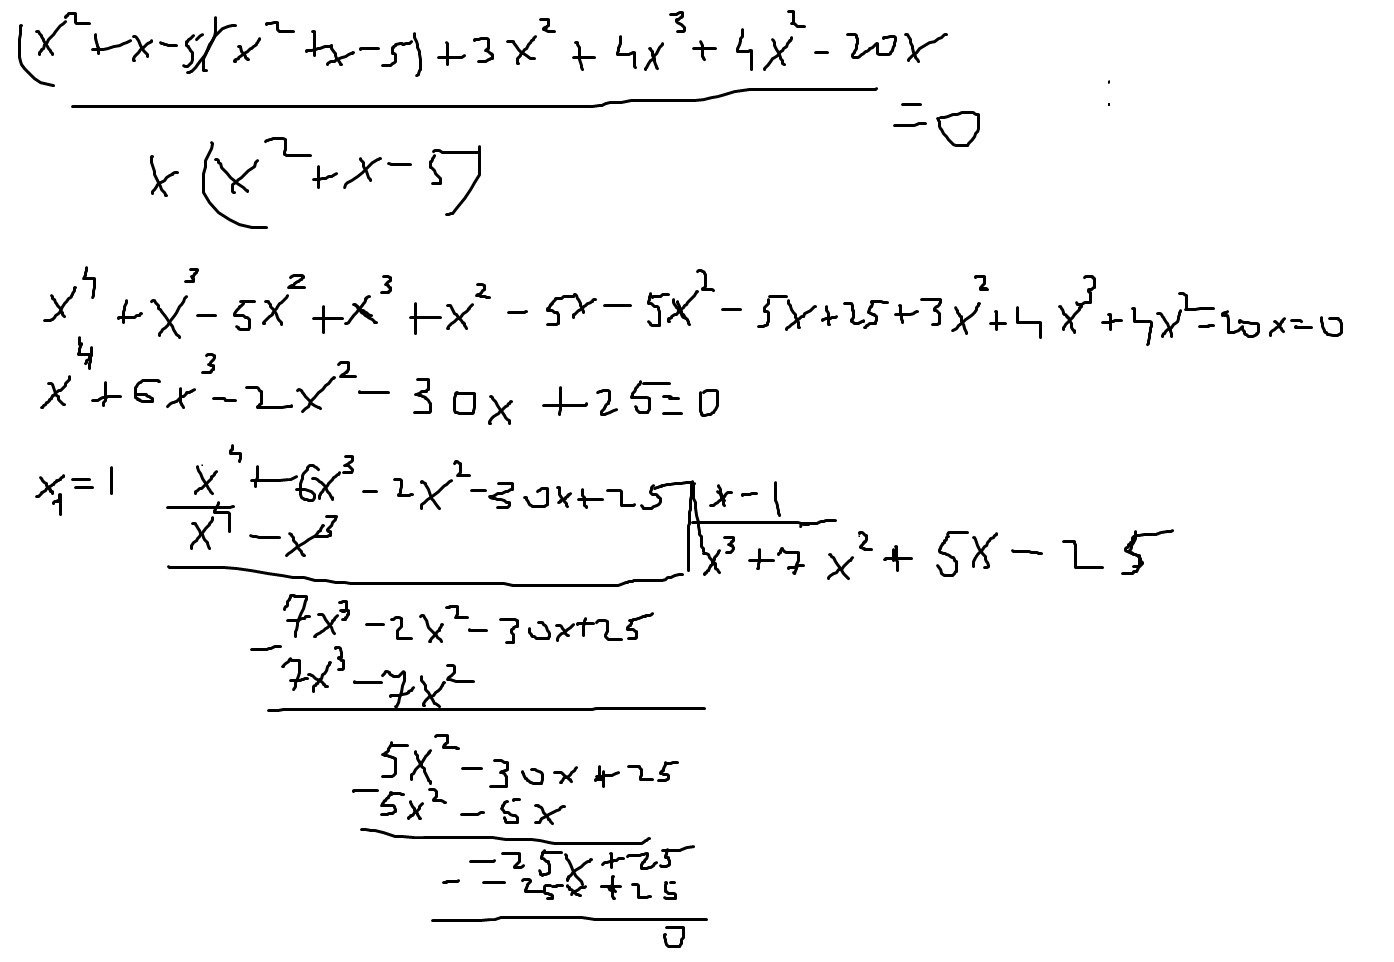 (x²+x-5)(x²+x-5)+3x²+4x³+4x²-20x
x(x²+x-5)
=0
x⁴+x³-5x²+x³+x²-5x-5x²-5x+25+3x²+4x³+4x²-20x=0
x⁴+6x³-2x²-30x+25=0
x₁=1 x⁴+6x³-2x²-30x+25 | x-1
x⁴-x³ x³+7x²+5x-25
7x³-2x²-30x+25
- 7x³-7x²
5x²-30x+25
- 5x²-5x
-25x+25
- -25x+25
0